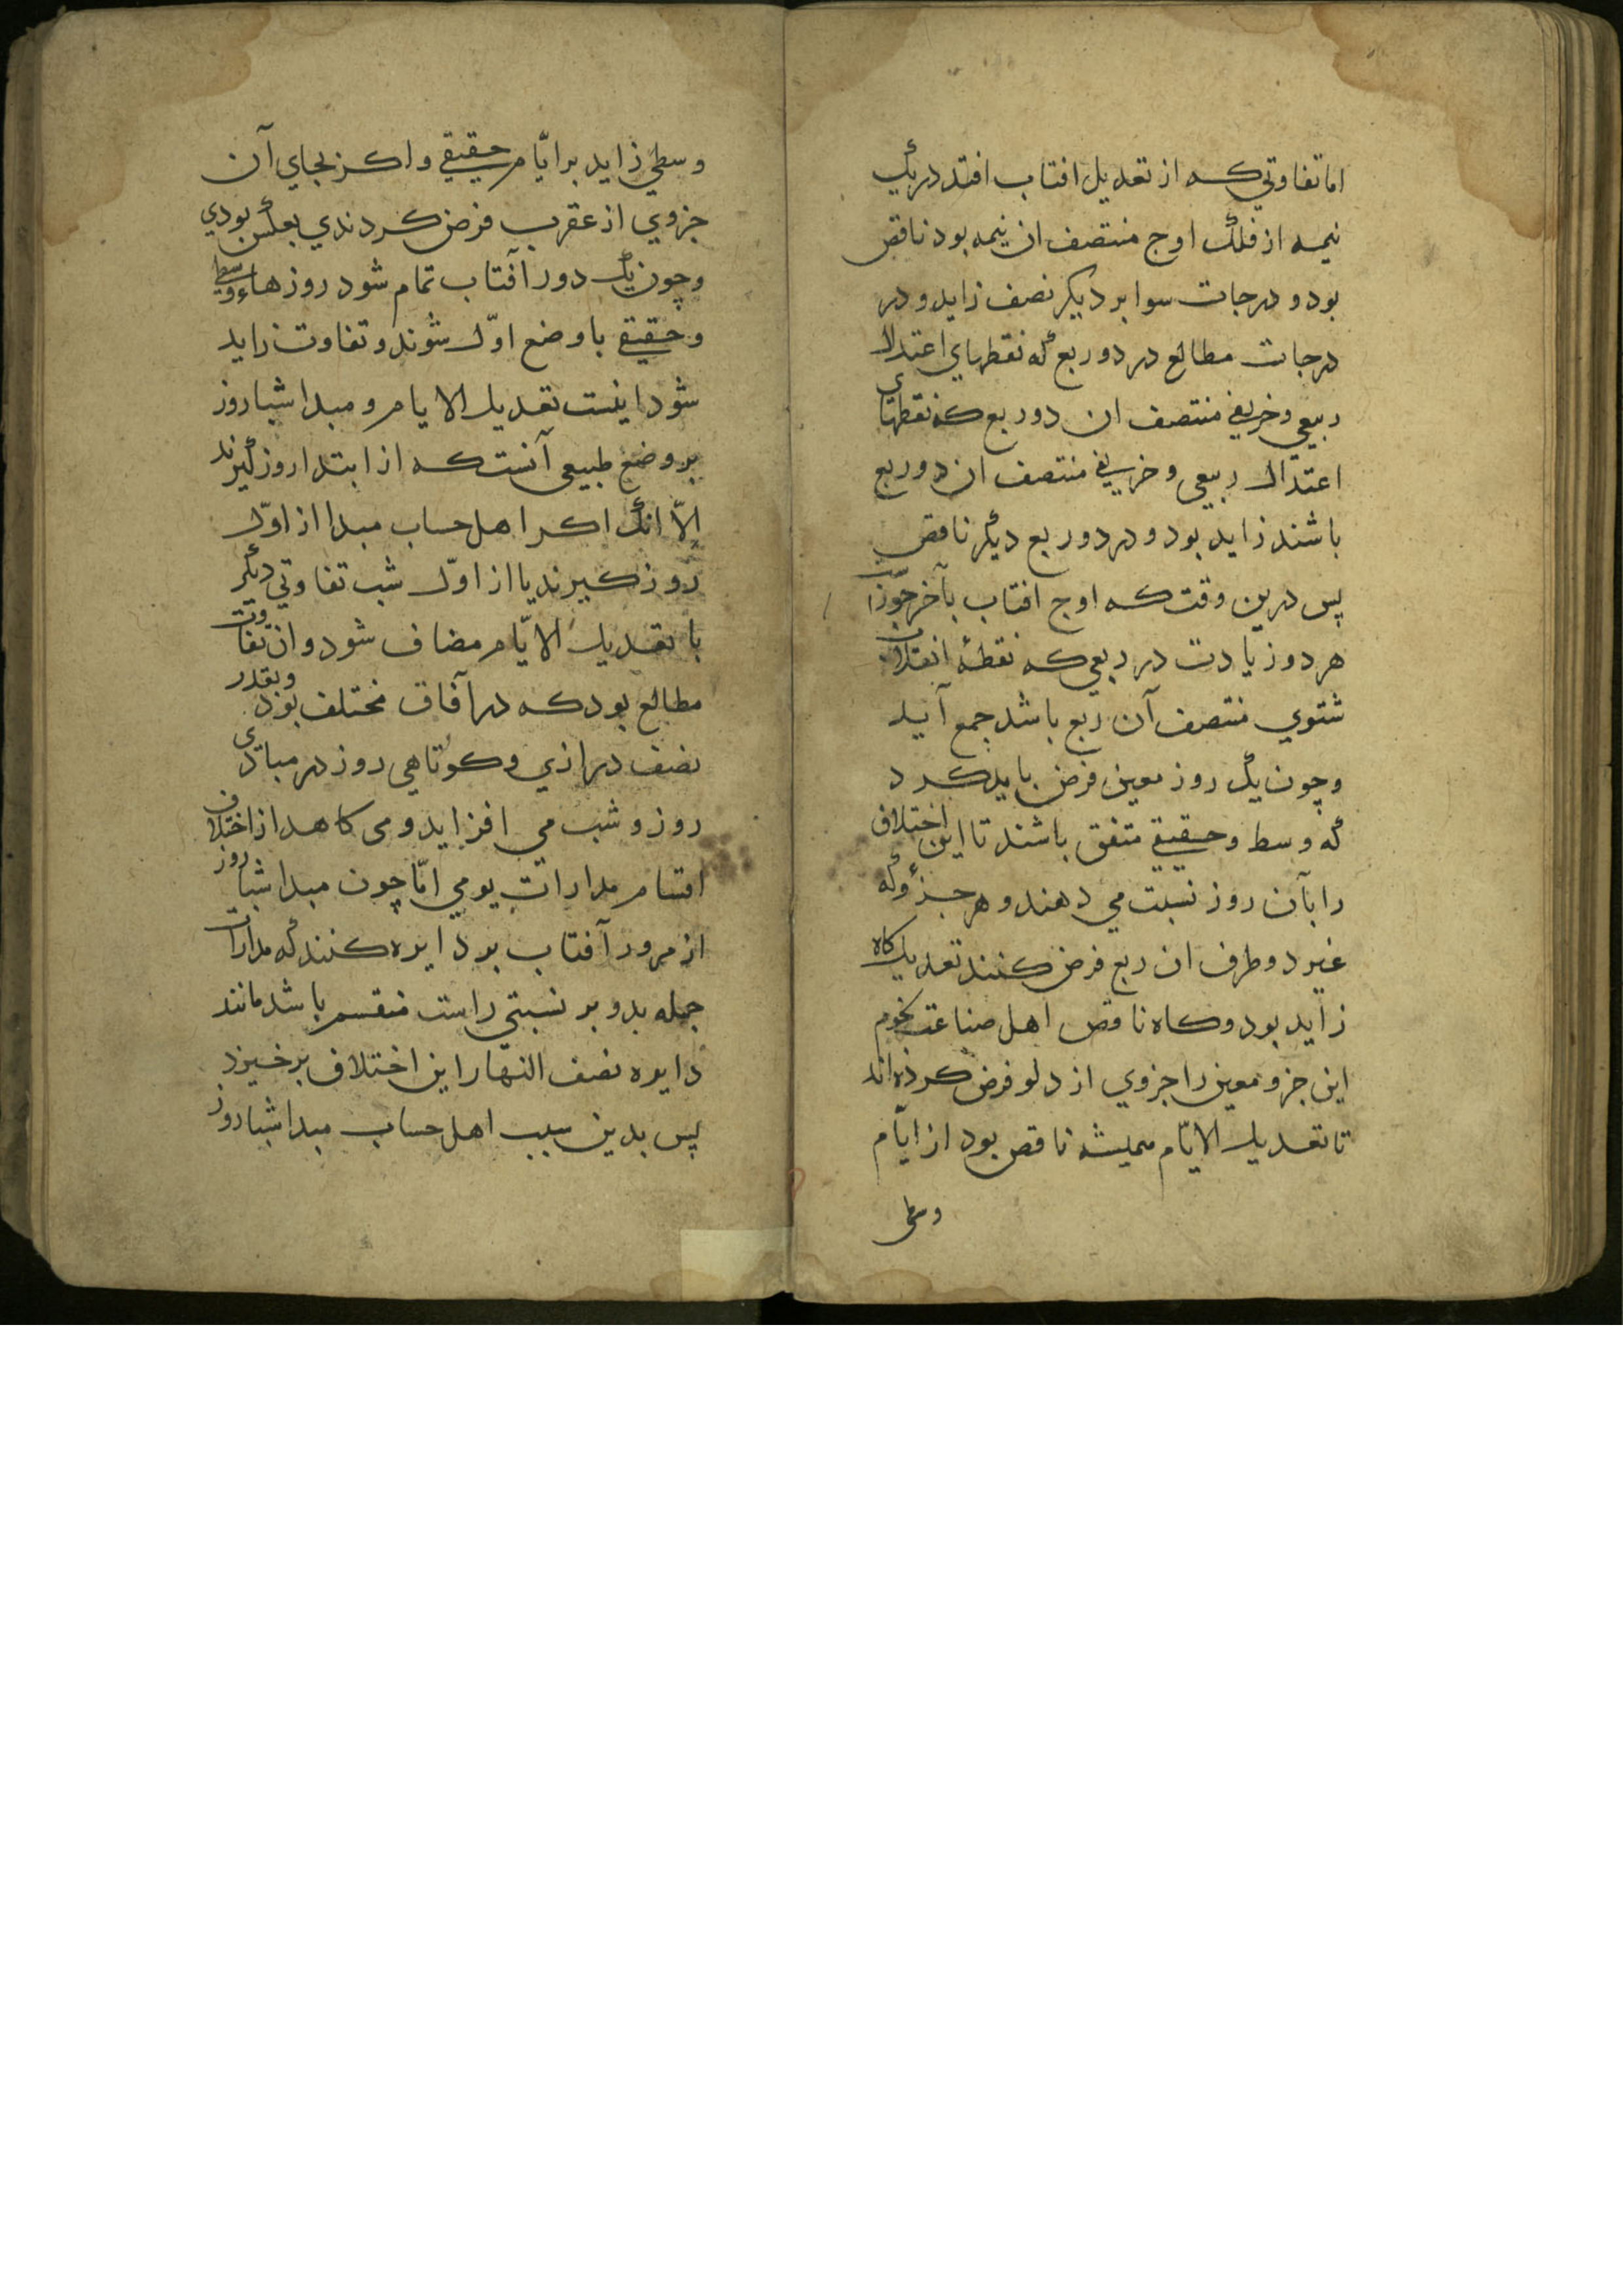 اما تفاوتي كه از تعديل افتاب افتد در يك
نيمه از فلك اوج منتصف ان نيمه بود ناقص
بود و درجات سوا بر ديكر نصف زايد و در
درجات مطالع در دو ربع كه نقطهاي اعتدال
ربيعي و خريفي منتصف ان دو ربع كه نقطهاى
اعتدال ربيعي و خريفي منتصف ان دو ربع
باشند زايد بود و در دو ربع ديكر ناقص
پس درين وقت كه اوج افتاب بآخر جوزاست
هر دو زيادت در ربعي كه نقطۀ انقلاب
شتوي منتصف آن ربع باشد جمع آيد
و چون يك روز معين فرض بايد كرد
كه وسط و حقيقي متفق باشند تا اين اختلاف
را بآن روز نسبت مي دهند و هر جزؤ كه
غير دو طرف ان ربع فرض كنند تعديل كاه
زايد بود و كاه ناقص اهل صناعت نجوم
اين جزو معين را جزوي از دلو فرض كرده اند
تا تعديل الايّام هميشه ناقص بود از ايّام
وسطى
وسطي زايد بر ايّام حقيقي و اكر بجاي آن
جزوي از عقرب فرض كردندي بعكس بودي
و چون يك دور آفتاب تمام شود روزهاء وسطي
و حقيقي با وضع اوّل شوند و تفاوت زايد
شود اينست تعديل الايام و مبدا شبا روز
بر وضع طبيعي آنست كه از ابتدا روز كيرند
الّا انك اكر اهل حساب مبدا از اوّل
روز كيرند يا از اوّل شب تفاوتي ديكر
با تعديل الايّام مضاف شود و ان تفاوت
مطالع بود كه در آفاق مختلف بود و بقدر
نصف درازي و كوتاهي روز در مبادى
روز و شب مي افزايد و مى كاهد از اختلاف
اقسام مدارات يومي امّا چون مبدا شبا روز
از مرور آفتاب بر دايره كنند كه مدارات
جمله بدو بر نسبتي راست منقسم باشد مانند
دايره نصف النهار اين اختلاف برخيزد
پس بدين سبب اهل حساب مبدا شبا روز